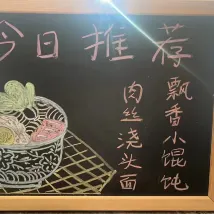 今日推荐
飘香小馄饨
肉丝浇头面